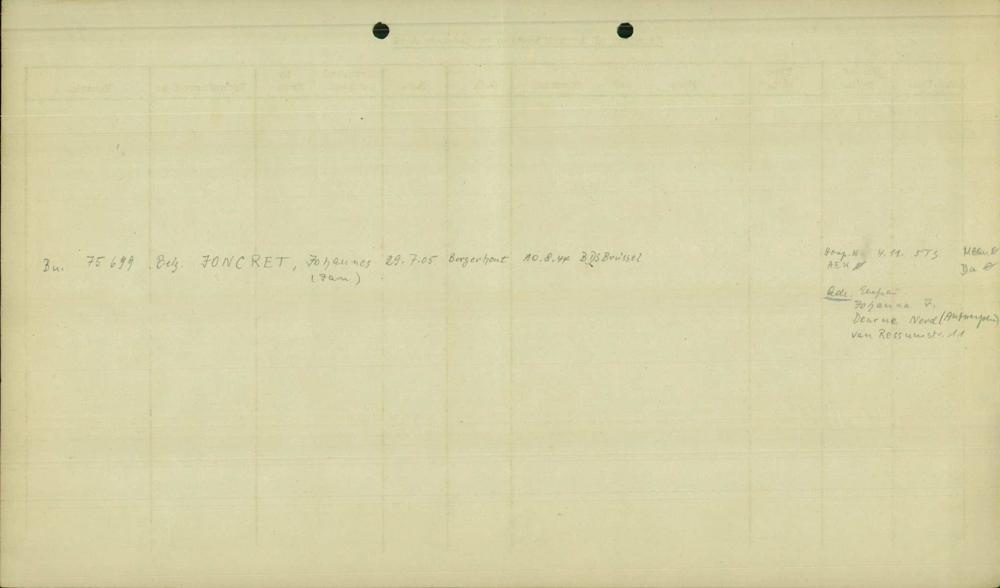 Bu. 75 699 Belg. JONCRET, Johannes 29.7.05 Borgerhout 10.8.44 BdS Brüssel
(Jan)
4.11. 5TJ
Adr. Ehefrau
Johanna J.
Deurne Nord (Antwerpen)
van Ressumstr. 11